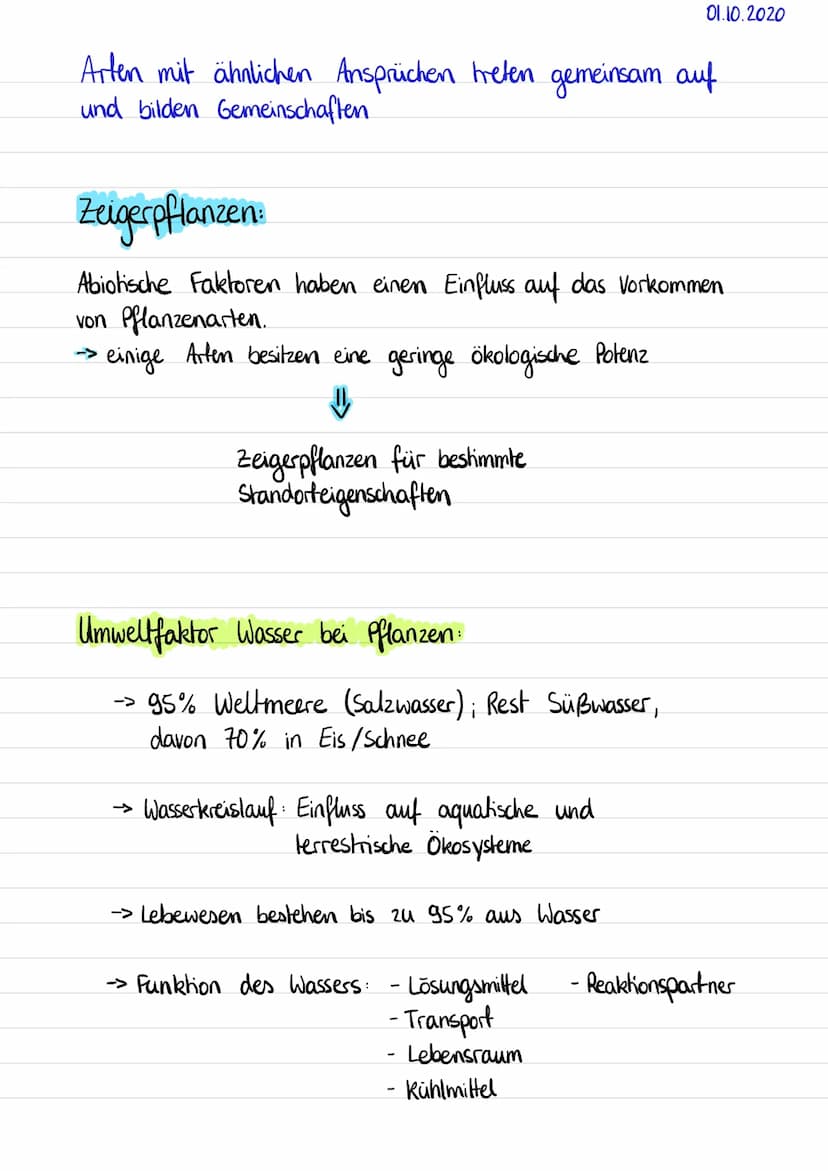 01.10.2020
Arten mit ähnlichen Ansprüchen treten gemeinsam auf
und bilden Gemeinschaften
Zeigerpflanzen:
Abiotische Faktoren haben einen Einfluss auf das Vorkommen
von Pflanzenarten.
-> einige Arten besitzen eine geringe ökologische Potenz
⇓
Zeigerpflanzen für bestimmte
Standorteigenschaften
Umweltfaktor Wasser bei Pflanzen:
-> 95% Weltmeere (Salzwasser); Rest Süßwasser,
davon 70% in Eis/Schnee
-> Wasserkreislauf: Einfluss auf aquatische und
terrestrische Ökosysteme
-> Lebewesen bestehen bis zu 95% aus Wasser
-> Funktion des Wassers: - Lösungsmittel - Reaktionspartner
- Transport
- Lebensraum
- Kühlmittel